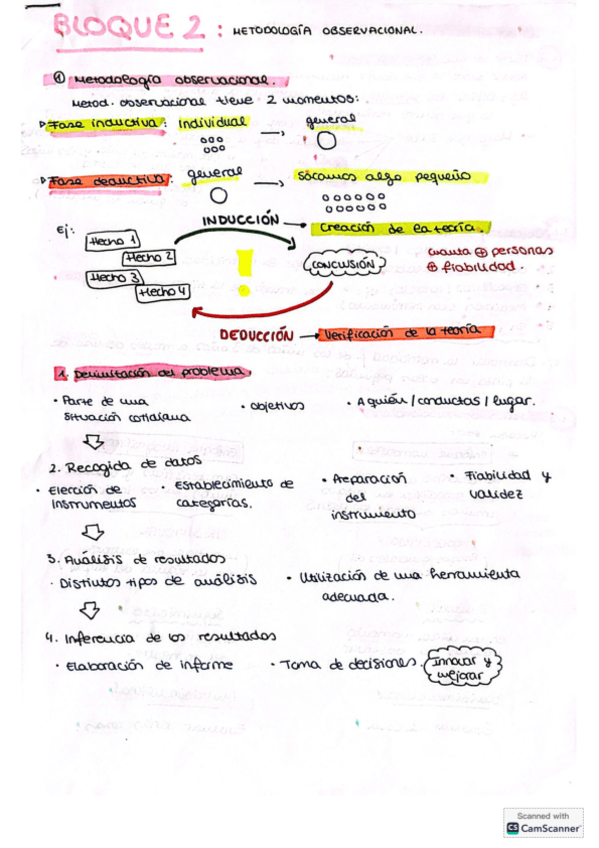 BLOQUE 2: METODOLOGÍA OBSERVACIONAL.
① Metodología observacional.
Metod. observacional tiene 2 momentos:
Fase inductiva: individual → general
Fase deductiva: general → sacamos algo pequeño
INDUCCIÓN → Creación de la teoría.
Ej:
Hecho 1
Hecho 2
Hecho 3
Hecho 4
!
CONCLUSIÓN
cuanta ⊕ personas
⊕ fiabilidad.
DEDUCCIÓN → Verificación de la teoría
1. Delimitación del problema
• Parte de una
situación cotidiana
• objetivos
• A quién / conductas / lugar.
2. Recogida de datos
• Elección de
instrumentos
• Establecimiento de
categorías.
• Preparación
del
instrumento
• Fiabilidad y
validez
3. Análisis de resultados
• Distintos tipos de análisis
• Utilización de una herramienta
adecuada.
4. Inferencia de los resultados
• Elaboración de informe
• Toma de decisiones.
Innovar y
mejorar
Scanned with
CS CamScanner